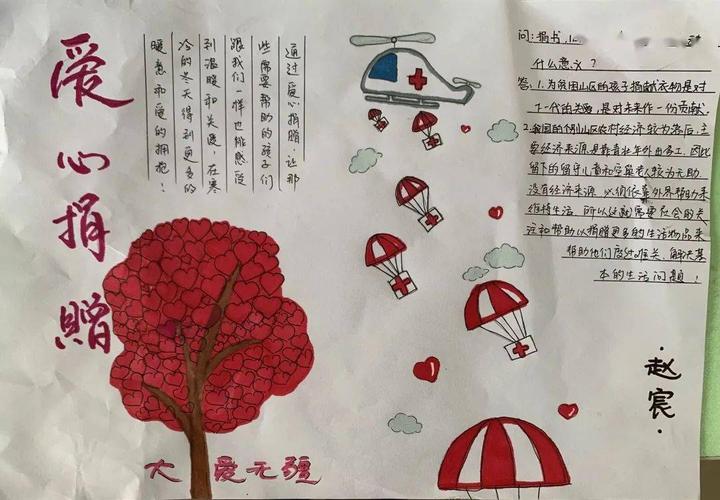 爱心捐赠
通过爱心捐赠，让那
些需要帮助的孩子们
跟我们一样也能感受
到温暖和关爱，在寒
冷的冬天得到更多的
暖意和爱的拥抱！
大爱无疆
问：捐书
什么意义？
答：1.为贫困山区的孩子捐献衣物是对
下一代的关爱，是对未来作一份贡献。
2.我国的个别山区农村经济较为落后，主
要经济来源是靠青壮年外出务工，因此
留下的留守儿童和空巢老人较为无助，
没有经济来源，必须依靠外界帮助来
维持生活，所以这就需要社会的关
注和帮助以捐赠更多的生活物品来
帮助他们度过难关，解决基
本的生活问题！
·赵宸·